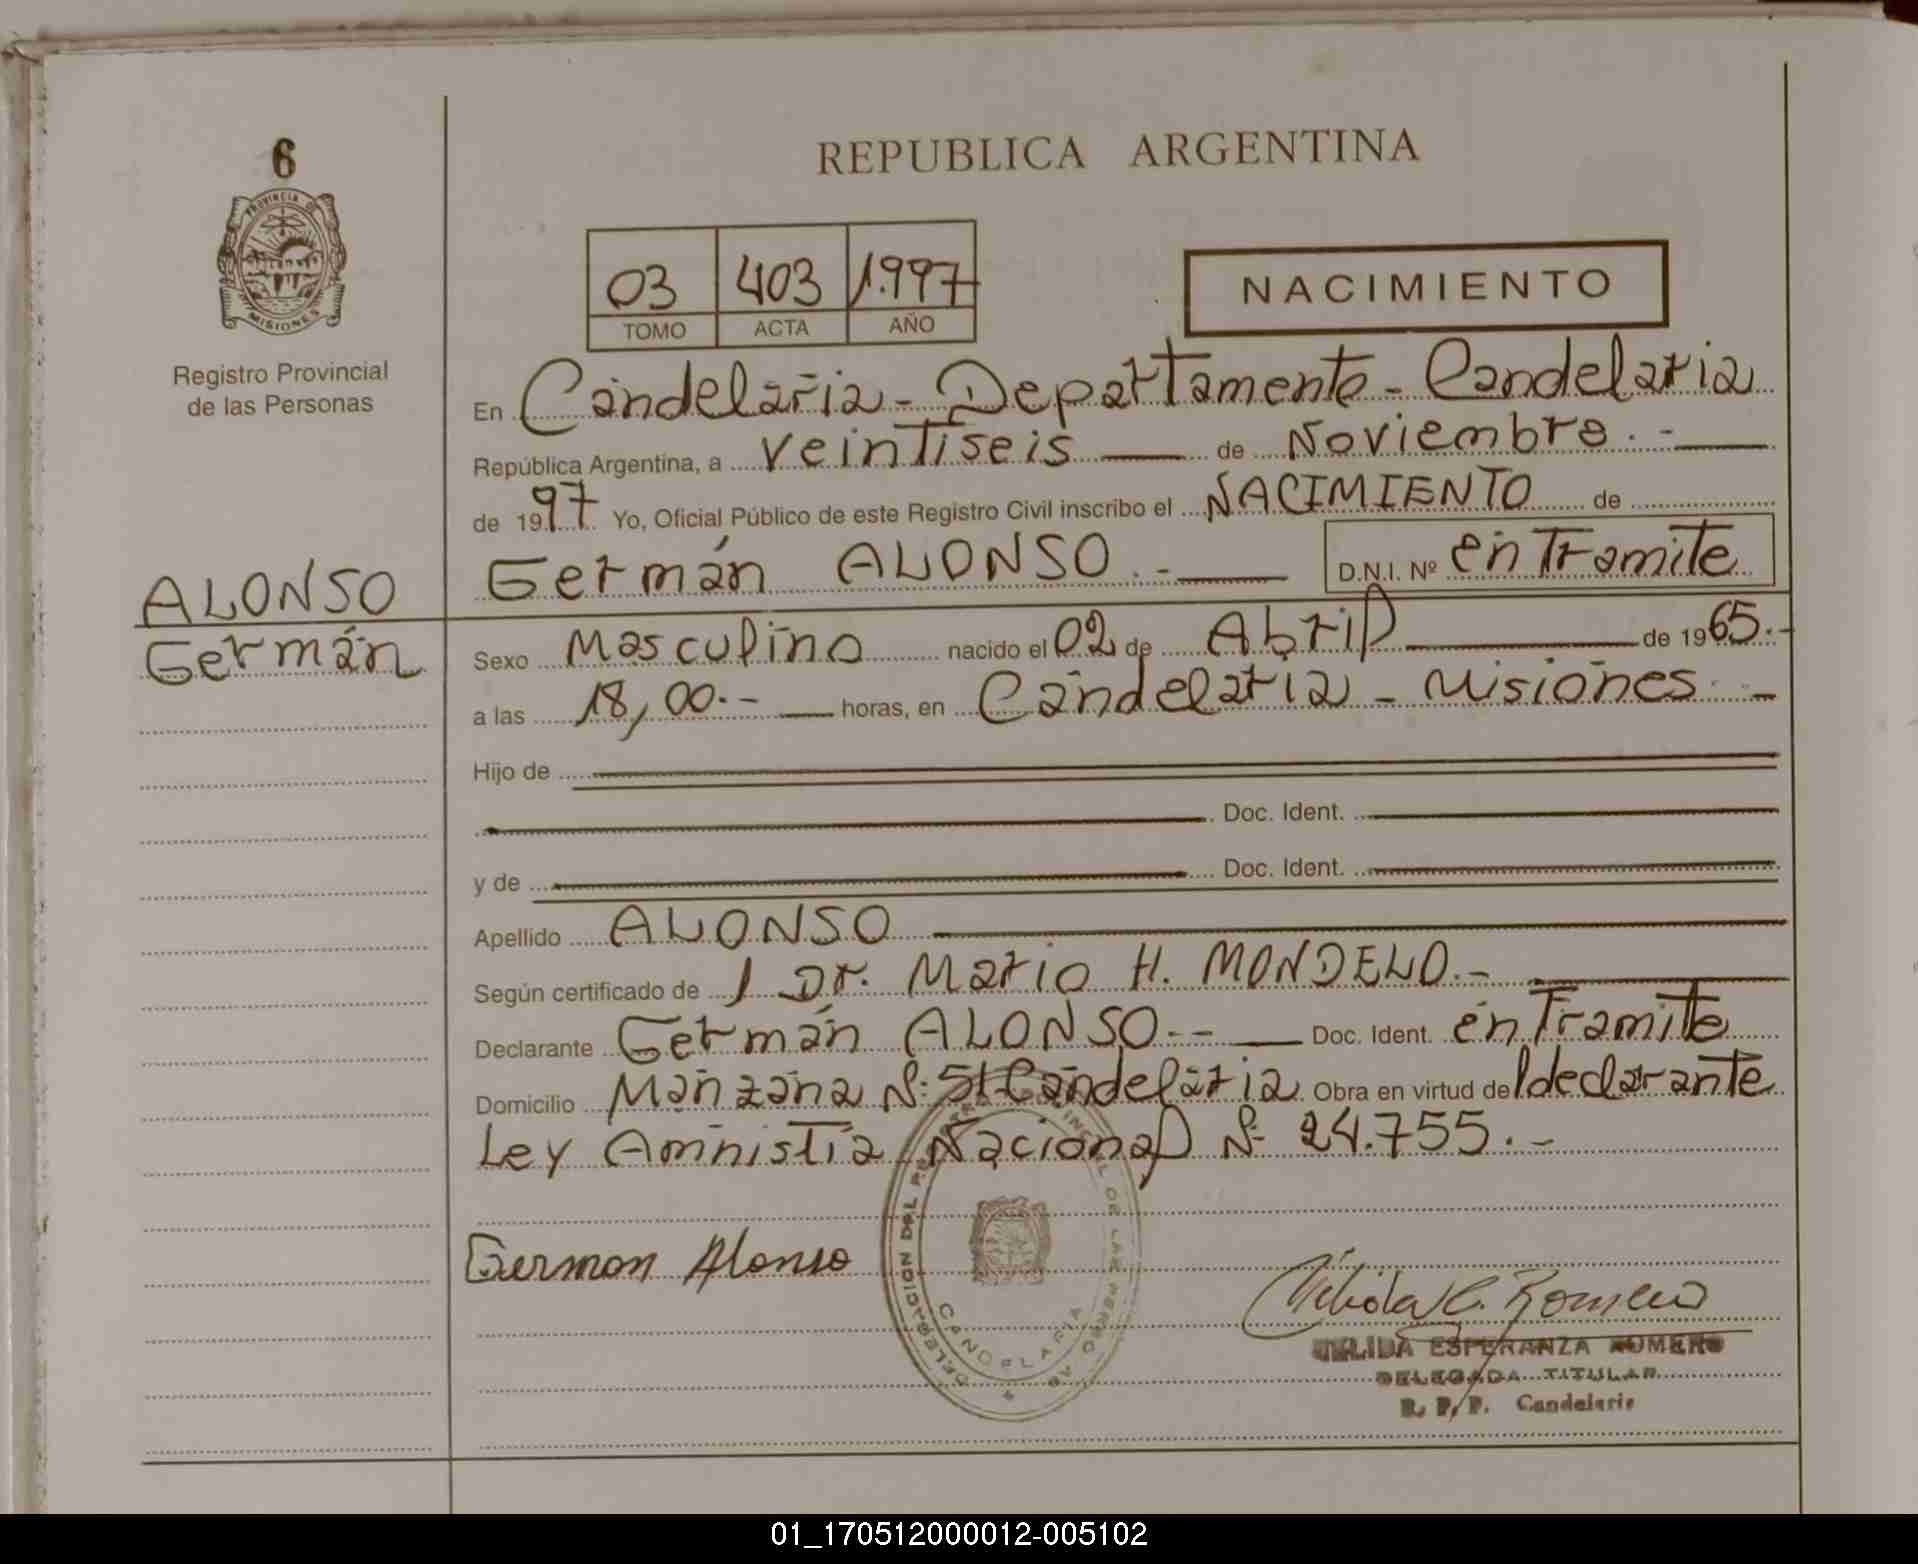 6
PROVINCIA DE
MISIONES
Registro Provincial
de las Personas
ALONSO
Germán
REPUBLICA ARGENTINA
03 403 1.997
TOMO ACTA AÑO
NACIMIENTO
En Candelaria - Departamento - Candelaria
República Argentina, a veintiseis de Noviembre. -
de 1997 Yo, Oficial Público de este Registro Civil inscribo el NACIMIENTO de
Germán ALONSO. - D.N.I. Nº en Tramite
Sexo Masculino nacido el 02 de Abril de 1965. -
a las 18,00. - horas, en Candelaria - Misiones -
Hijo de
Doc. Ident.
y de Doc. Ident.
Apellido ALONSO
Según certificado de / Dr. Mario H. MONDELO. -
Declarante Germán ALONSO - - Doc. Ident. en Tramite
Domicilio Manzana Nº 51 Candelaria Obra en virtud de / declarante
Ley Amnistia Nacional Nº 24.755. -
German Alonso
DELEGACION DEL PROVINCIAL DE LAS PERSONAS
CANDELARIA
Romero
ESPERANZA ROMERO
DELEGADA TITULAR
R. P. P. Candelaria
01_170512000012-005102